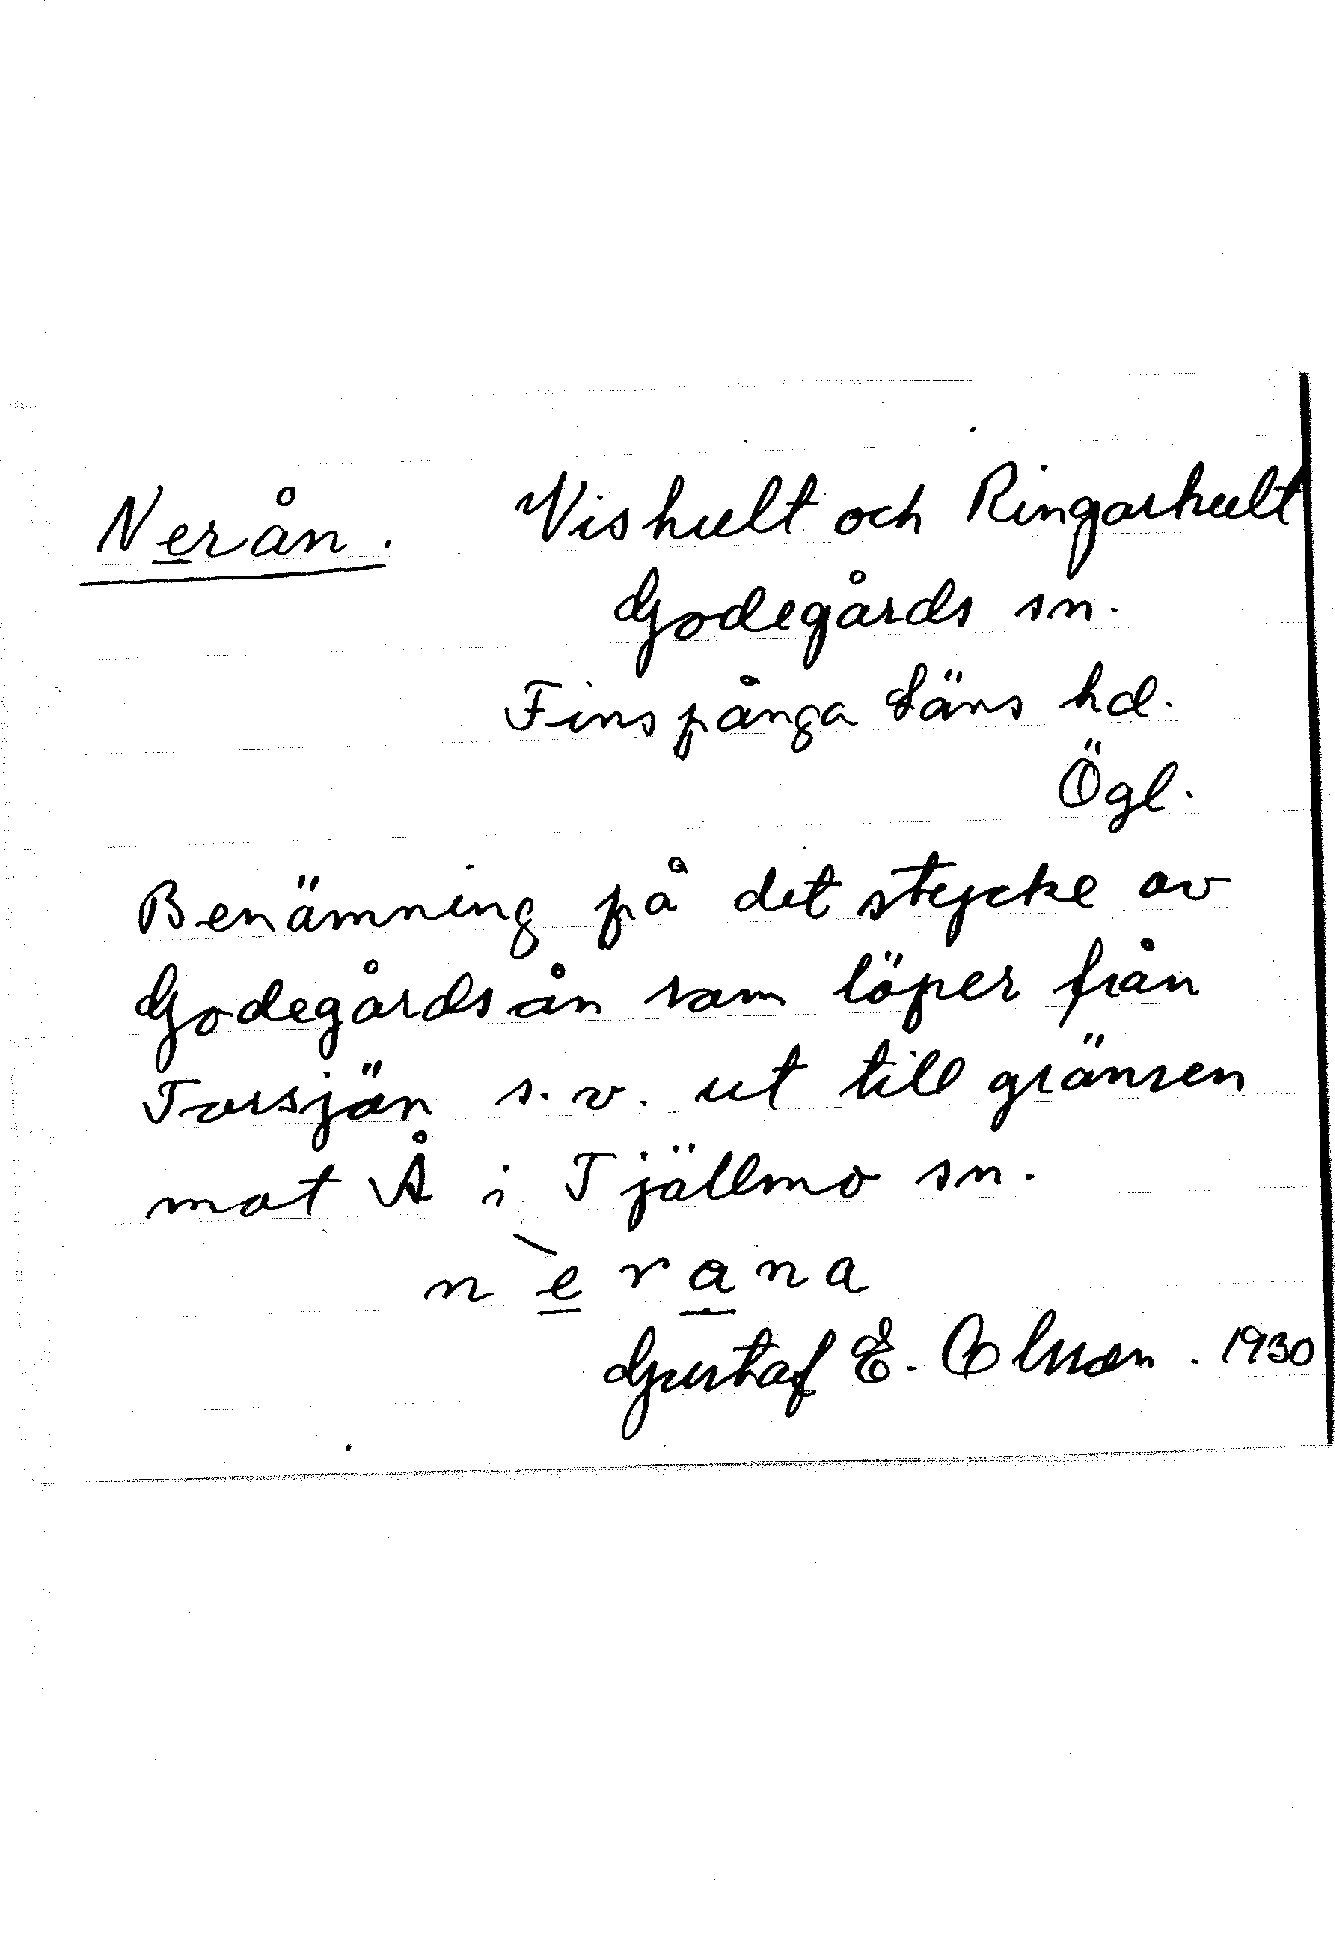 Nerån. Vishult och Ringarhult
Godegårds sn.
Finspånga läns hd.
Ögl.
Benämning på det stycke av
Godegårdsån som löper från
Torsjön s.v. ut till gränsen
mot Å i Tjällmo sn.
n è r a n a
Gustaf E. Olsson. 1930